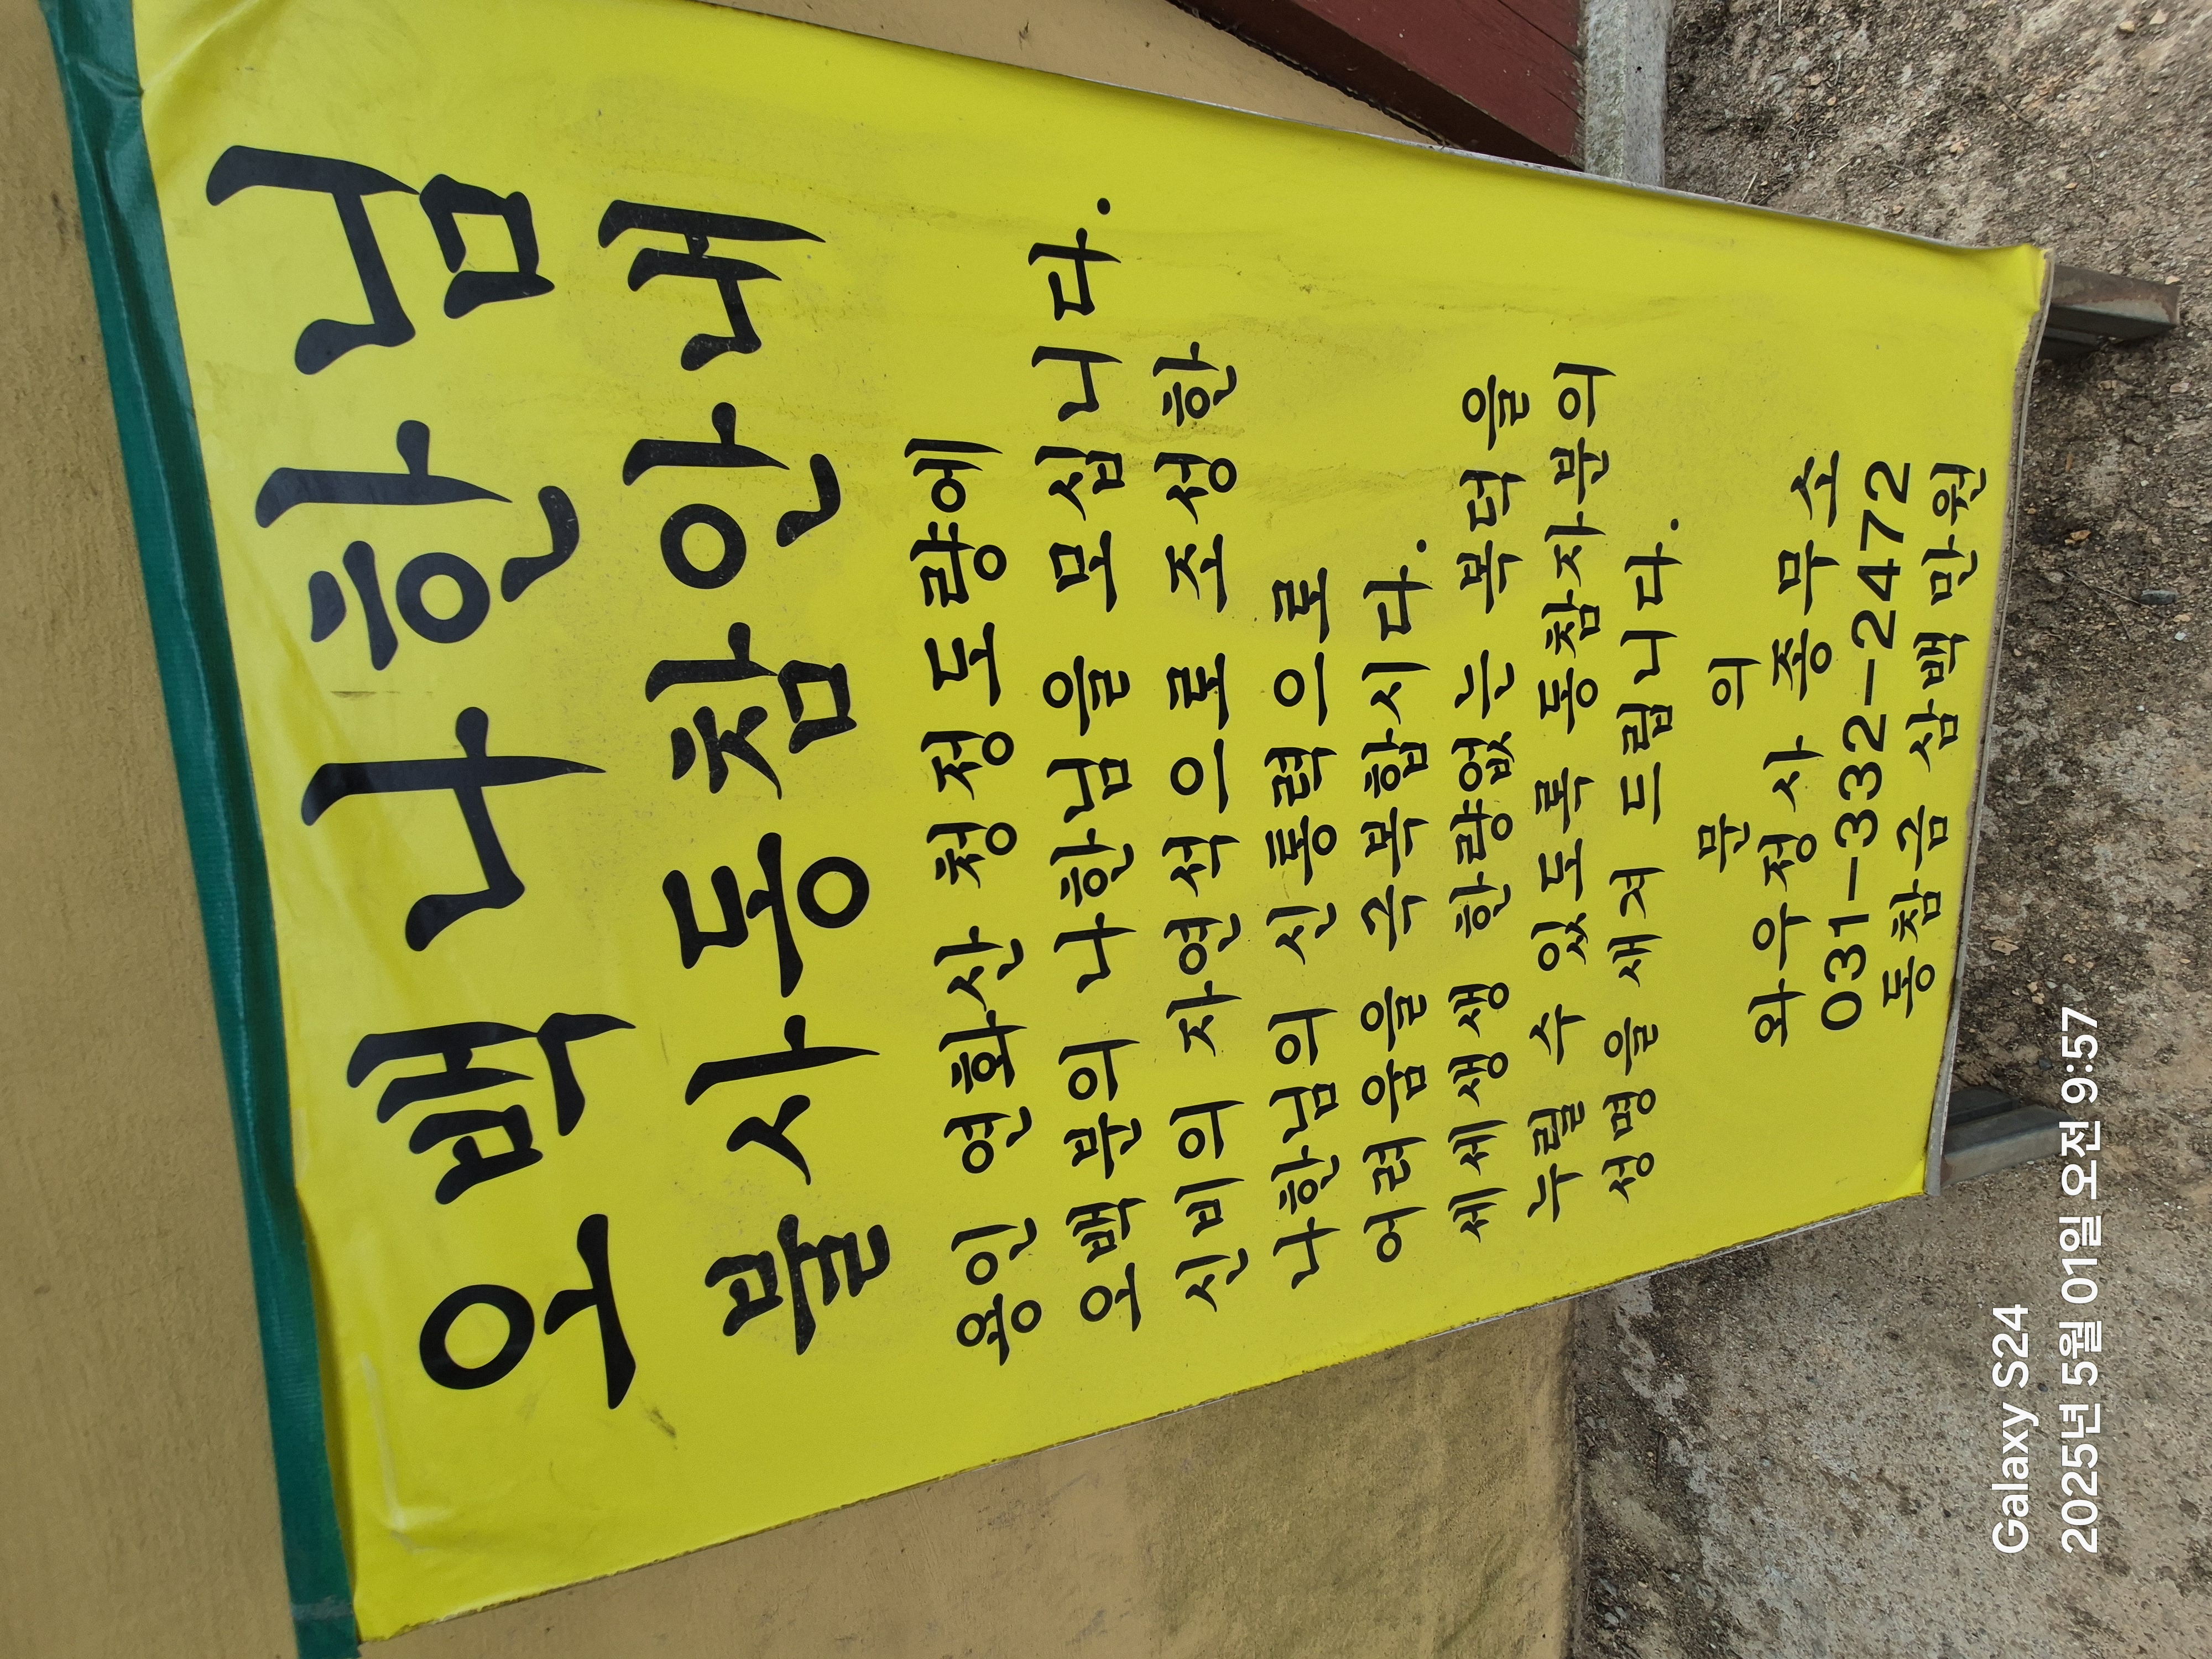 오백나한님
불사동참안내
용인 연화산 청정도량에
오백분의 나한님을 모십니다.
신비의 자연석으로 조성한
나한님의 신통력으로
어려움을 극복합시다.
세세생생 한량없는 복덕을
누릴 수 있도록 동참자분의
성명을 새겨 드립니다.
문 의
와우정사 종무소
031-332-2472
동참금 삼백만원
Galaxy S24
2025년 5월 01일 오전 9:57